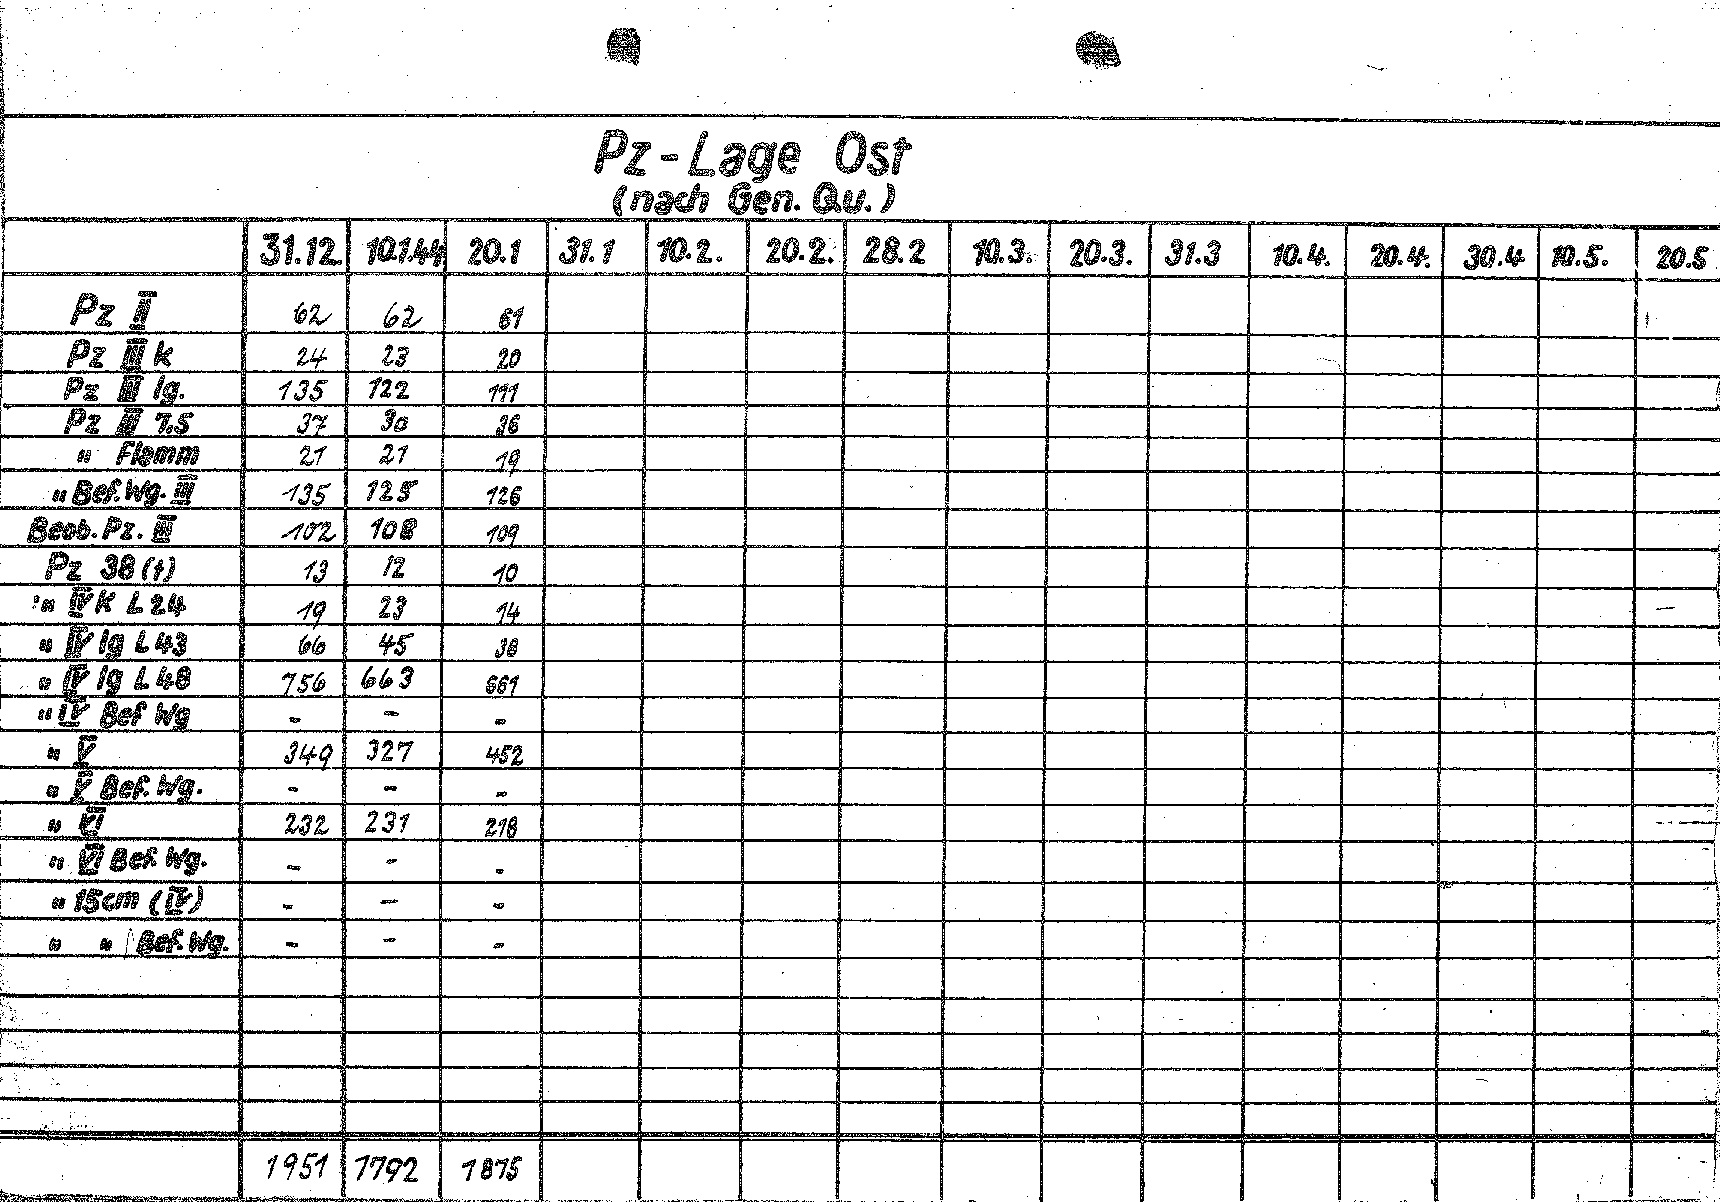 Pz-Lage Ost
(nach Gen. Qu.)
31.12. 10.1.44 20.1 31.1 10.2. 20.2. 28.2 10.3. 20.3. 31.3 10.4. 20.4. 30.4 10.5. 20.5
Pz II 62 62 61
Pz III k 24 23 20
Pz III lg. 135 122 111
Pz III 7.5 37 30 36
" Flamm 21 21 19
" Bef.Wg. III 135 125 126
Beob. Pz. III 102 108 109
Pz 38 (t) 13 12 10
" IV K L 24 19 23 14
" IV lg L 43 66 45 38
" IV lg L 48 756 663 661
" IV Bef Wg - - -
" V 349 327 452
" V Bef. Wg. - - -
" VI 232 231 218
" VI Bef. Wg. - - -
" 15cm (IV) - - -
" " Bef. Wg. - - -
1951 1792 1875